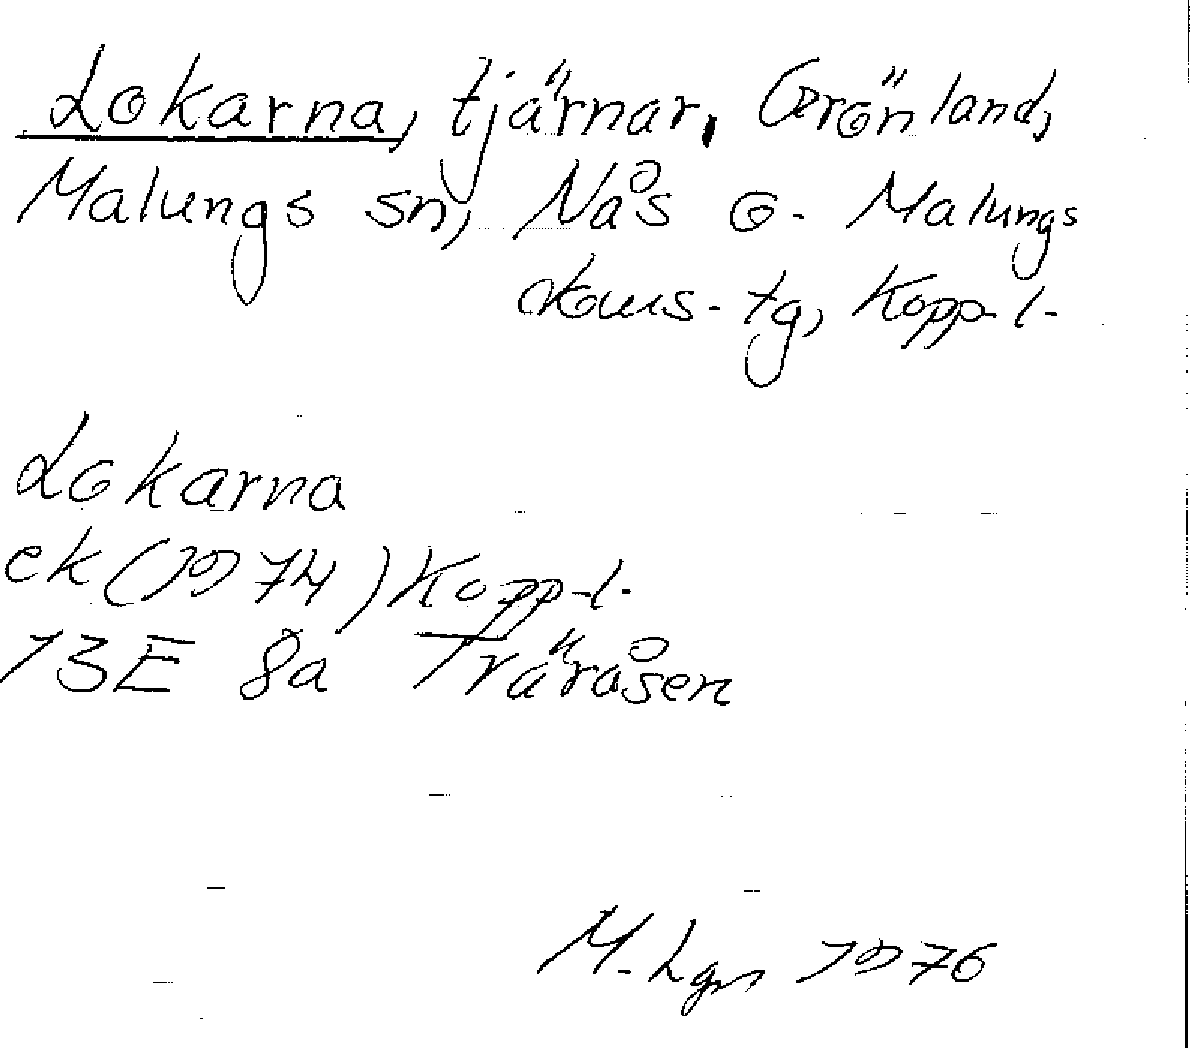 Lokarna, tjärnar, Grönland,
Malungs sn, Nås o. Malungs
doms. tg, Kopp. l.
Lokarna
ek (1974) Kopp. l.
13E 8a Träråsen
M. Lgn 1976